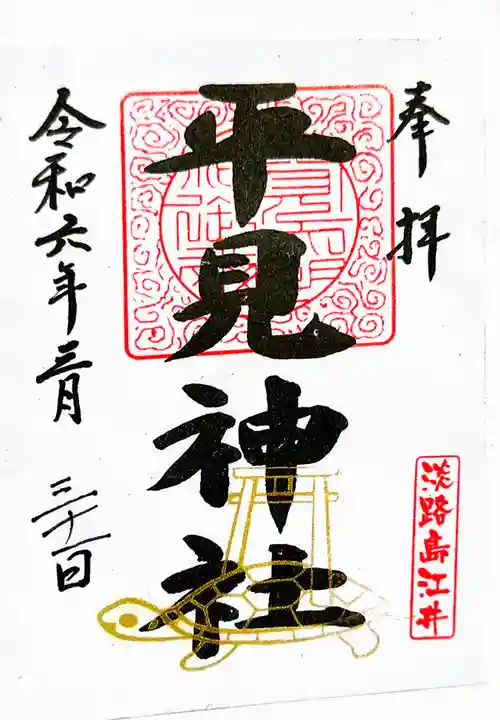 奉拝
平見神社
令和六年三月
三十一日
淡路島江井